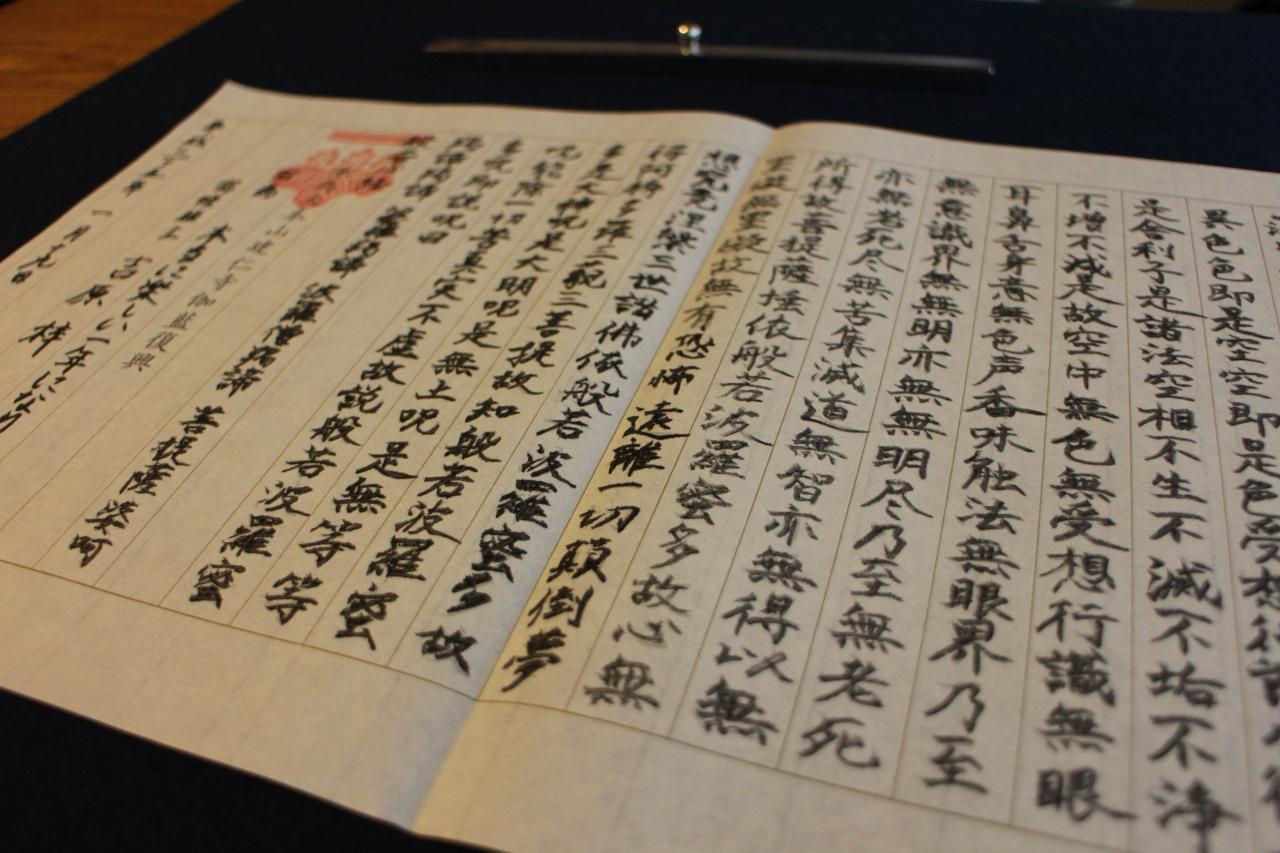 異色色即是空空即是色受想行
是舎利子是諸法空相不生不滅不垢不浄
不増不減是故空中無色無受想行識無眼
耳鼻舌身意無色声香味触法無眼界乃至
無意識界無無明亦無無明尽乃至無老死
亦無老死尽無苦集滅道無智亦無得以無
所得故菩提薩埵依般若波羅蜜多故心無
罣礙無罣礙故無有恐怖遠離一切顛倒夢
想究竟涅槃三世諸佛依般若波羅蜜多故
得阿耨多羅三藐三菩提故知般若波羅蜜
多是大神呪是大明呪是無上呪是無等等
呪能除一切苦真実不虚故説般若波羅蜜
多呪即説呪曰
羯諦羯諦 波羅羯諦 波羅僧羯諦 菩提薩婆訶
本山建仁寺 伽藍復興
楽しい一年になり
吉原 梓
一月九日